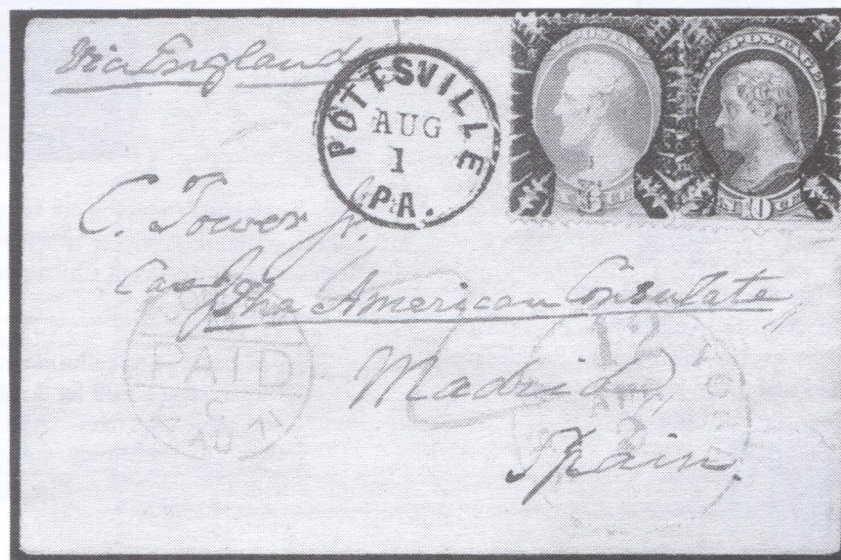 Via England
POTTSVILLE
AUG
1
PA.
C. Tower Jr.
Care of the American Consulate
Madrid
Spain.
PAID
C
AU 71
12
10